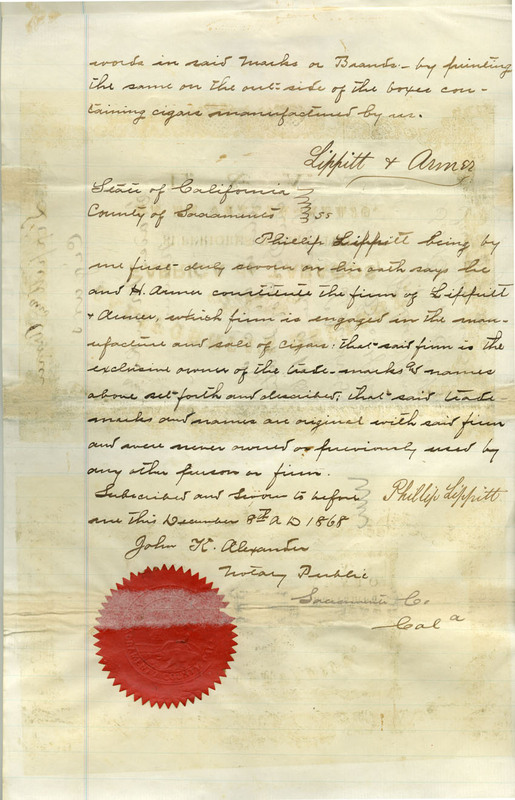 words in said Marks or Brands - by printing
the same on the out-side of the boxes con-
taining cigars manufactured by us.
Lippitt & Armer
State of California
County of Sacramento } ss
Phillip Lippitt being by
me first duly sworn on his oath says he
and H. Armer constitute the firm of Lippitt
& Armer, which firm is engaged in the man-
ufacture and sale of cigars: that said firm is the
exclusive owner of the trade-marks & names
above set-forth and described, that said trade
marks and names are original with said firm
and were never owned or previously used by
any other person or firm.
Subscribed and Sworn to before
me this December 8th A D 1868
Phillip Lippitt
John K. Alexander
Notary Public,
Sacramento Co.
Cala